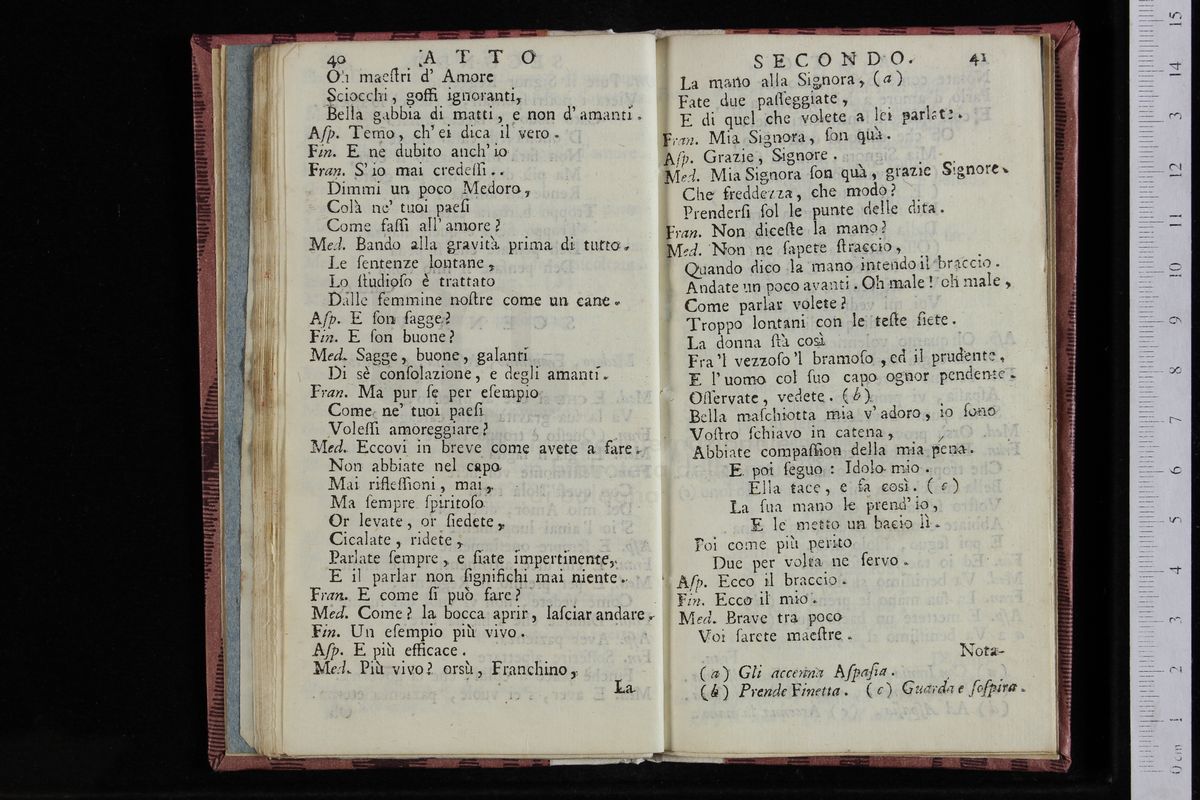 40 ATTO
Oh maeſtri d' Amore
Sciocchi, goffi ignoranti,
Bella gabbia di matti, e non d'amanti.
Aſp. Temo, ch'ei dica il vero.
Fin. E ne dubito anch'io
Fran. S'io mai credeſſi..
Dimmi un poco Medoro,
Colà ne' tuoi paeſi
Come faſſi all'amore?
Med. Bando alla gravità prima di tutto.
Le ſentenze lontane,
Lo ſtudioſo è trattato
Dalle femmine noſtre come un cane.
Aſp. E ſon ſagge?
Fin. E ſon buone?
Med. Sagge, buone, galanti
Di sè conſolazione, e degli amanti.
Fran. Ma pur ſe per eſempio
Come ne' tuoi paeſi
Voleſſi amoreggiare?
Med. Eccovi in breve come avete a fare.
Non abbiate nel capo
Mai rifleſſioni, mai,
Ma ſempre ſpiritoſo
Or levate, or ſiedete,
Cicalate, ridete,
Parlate ſempre, e ſiate impertinente,
E il parlar non ſignifichi mai niente.
Fran. E come ſi può fare?
Med. Come? la bocca aprir, laſciar andare.
Fin. Un eſempio più vivo.
Aſp. E più efficace.
Med. Più vivo? orsù, Franchino,
La
SECONDO. 41
La mano alla Signora, (a)
Fate due paſſeggiate,
E di quel che volete a lei parlate.
Fran. Mia Signora, ſon quà.
Aſp. Grazie, Signore.
Med. Mia Signora ſon quà, grazie Signore.
Che freddezza, che modo?
Prenderſi ſol le punte delle dita.
Fran. Non diceſte la mano?
Med. Non ne ſapete ſtraccio,
Quando dico la mano intendo il braccio.
Andate un poco avanti. Oh male! oh male,
Come parlar volete?
Troppo lontani con le teſte ſiete.
La donna ſtà così
Fra'l vezzoſo 'l bramoſo, ed il prudente,
E l'uomo col ſuo capo ognor pendente.
Oſſervate, vedete. (b)
Bella maſchiotta mia v'adoro, io ſono
Voſtro ſchiavo in catena,
Abbiate compaſſion della mia pena.
E poi ſeguo: Idolo mio.
Ella tace, e fa così. (c)
La ſua mano le prend'io,
E le metto un bacio lì.
Poi come più perito
Due per volta ne ſervo.
Aſp. Ecco il braccio.
Fin. Ecco il mio.
Med. Brave tra poco
Voi ſarete maeſtre.
Nota-
(a) Gli accenna Aſpaſia.
(b) Prende Finetta. (c) Guarda e ſoſpira.
0 cm 1 2 3 4 5 6 7 8 9 10 11 12 13 14 15